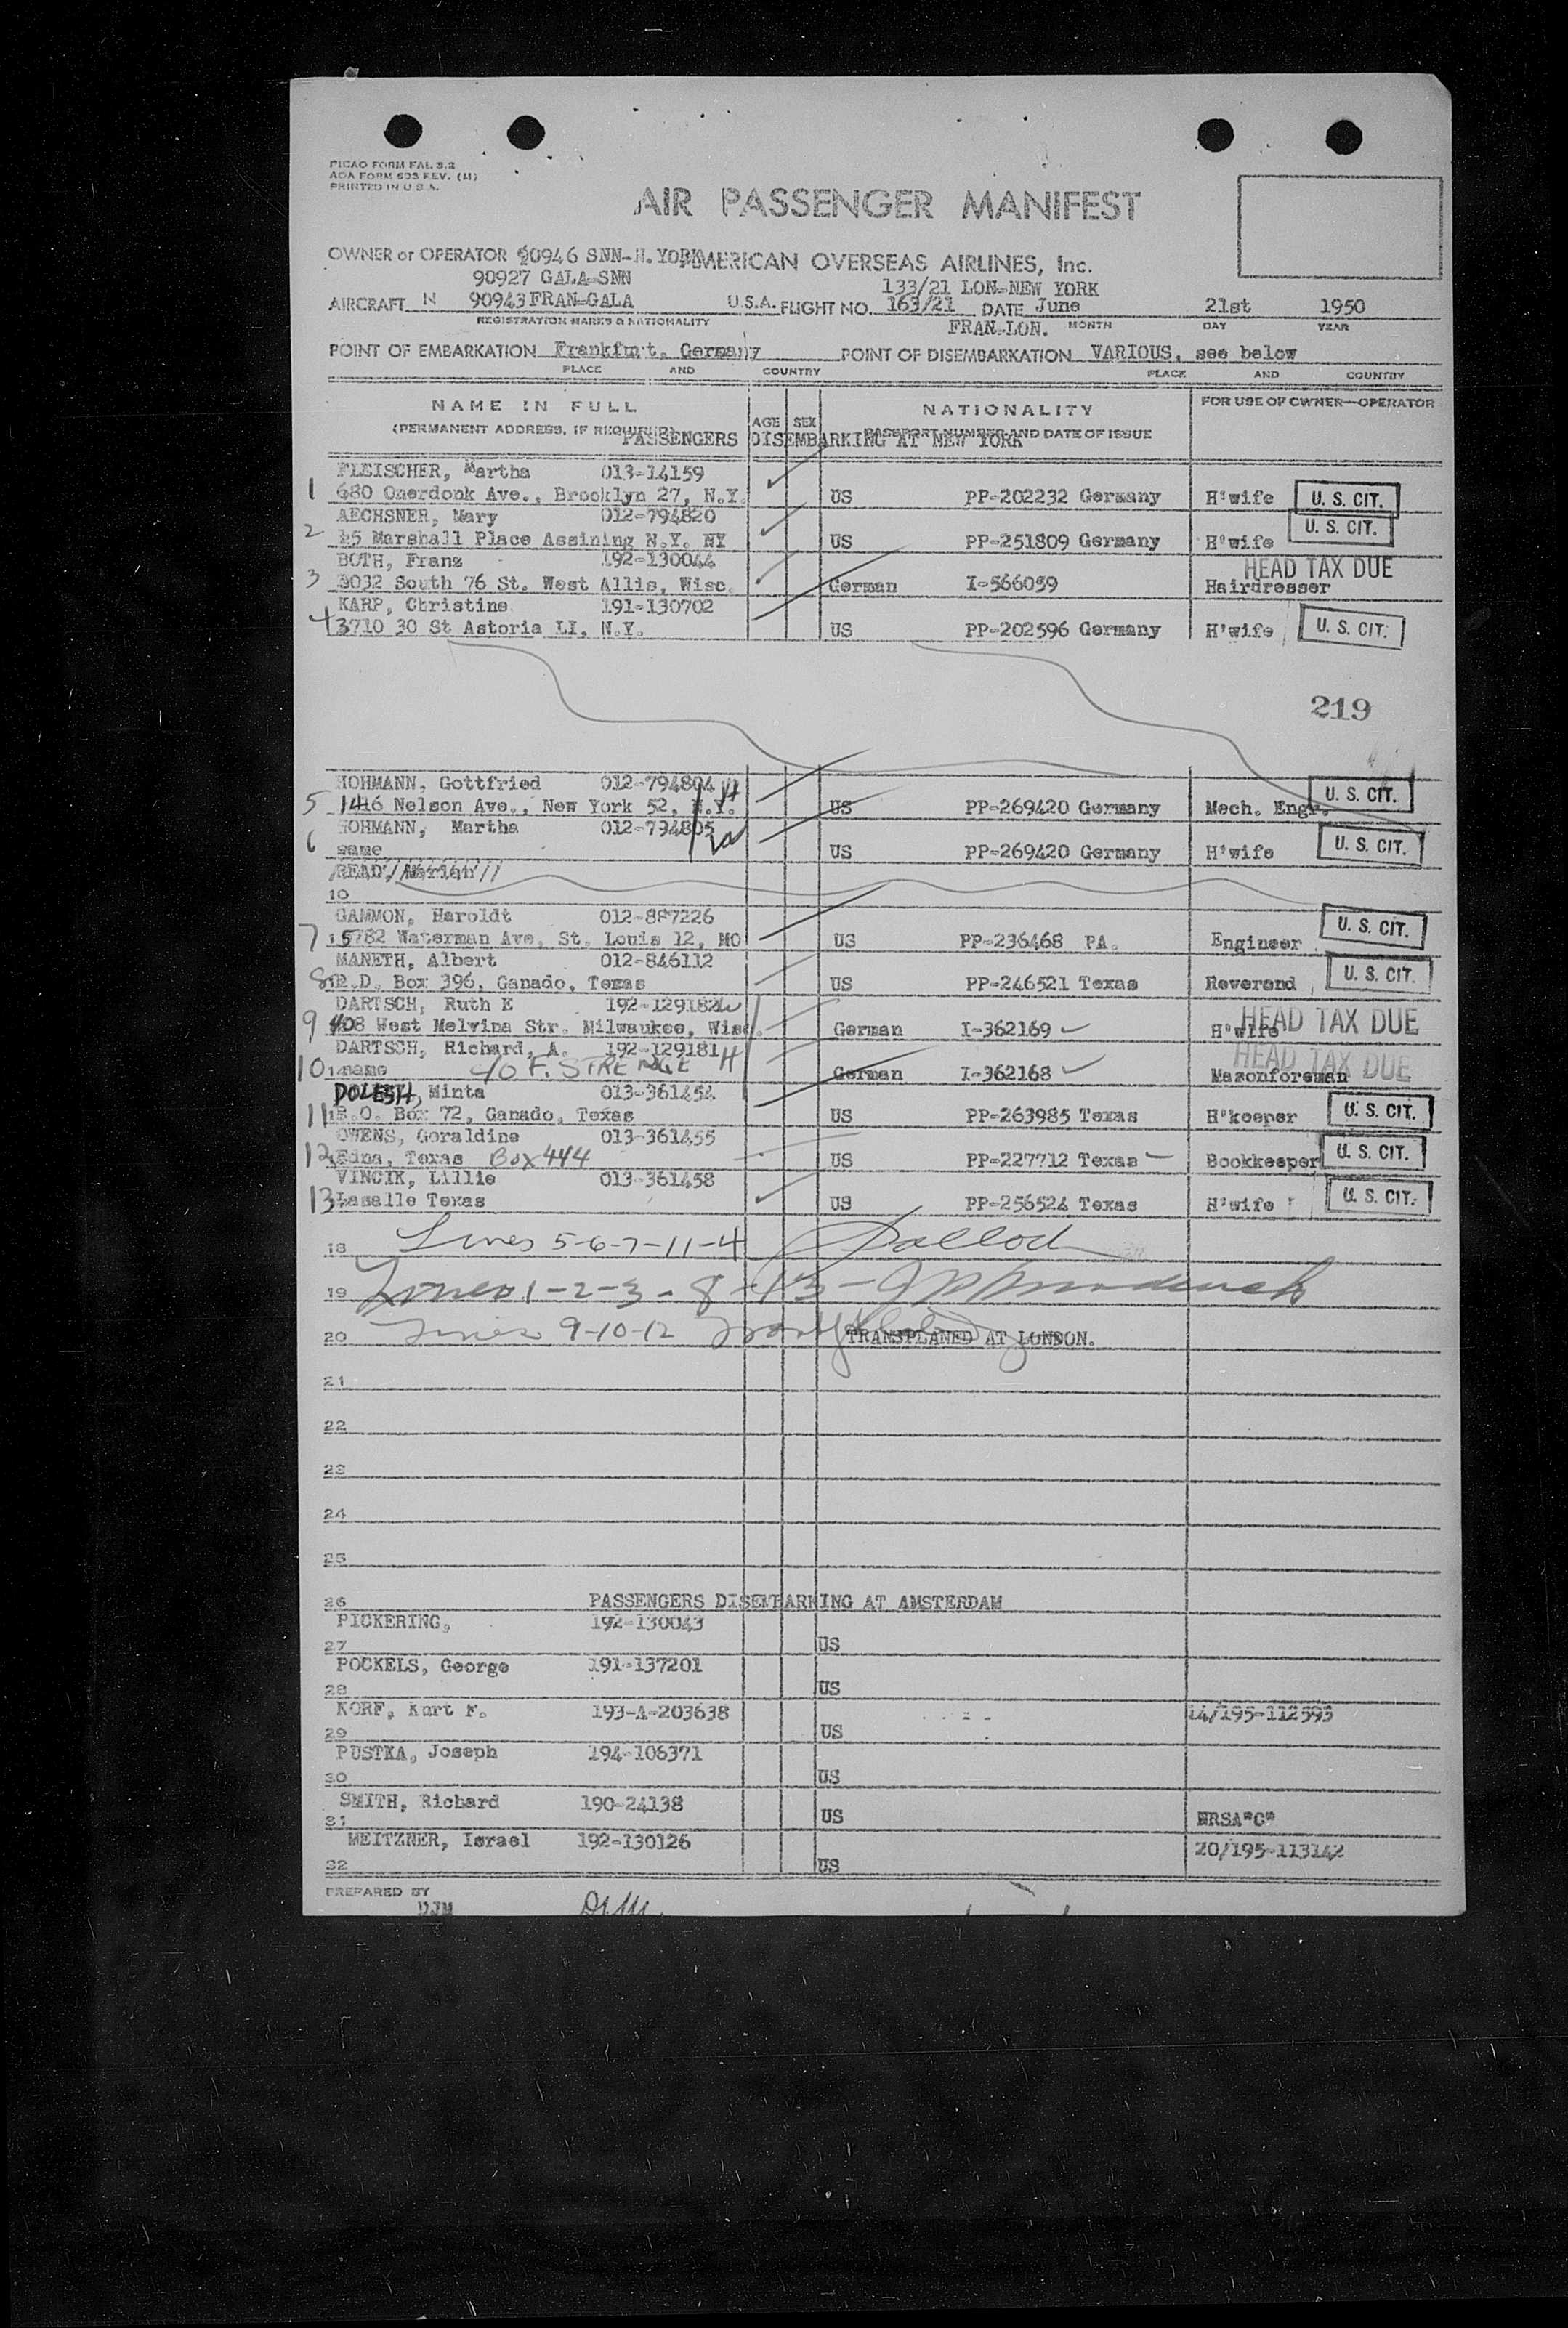 PICAO FORM FAL 3.2
AOA FORM 603 REV. (M)
PRINTED IN U.S.A.
AIR PASSENGER MANIFEST
OWNER or OPERATOR 90946 SNN-N.YORK AMERICAN OVERSEAS AIRLINES, Inc.
90927 GALA-SNN
133/21 LON-NEW YORK
AIRCRAFT N 90943 FRAN-GALA U.S.A. FLIGHT NO. 163/21 DATE June 21st 1950
REGISTRATION MARKS & NATIONALITY FRAN-LON. MONTH DAY YEAR
POINT OF EMBARKATION Frankfurt, Germany POINT OF DISEMBARKATION VARIOUS, see below
PLACE AND COUNTRY PLACE AND COUNTRY
NAME IN FULL AGE SEX NATIONALITY FOR USE OF OWNER—OPERATOR
(PERMANENT ADDRESS, IF REQUIRED) PASSPORT NUMBER AND DATE OF ISSUE
PASSENGERS DISEMBARKING AT NEW YORK
FLEISCHER, Martha 013-14159
1 680 Onerdonk Ave., Brooklyn 27, N.Y. US PP-202232 Germany H'wife U. S. CIT.
AECHSNER, Mary 012-794820
2 15 Marshall Place Assining N.Y. NY US PP-251809 Germany H'wife U. S. CIT.
BOTH, Franz 192-130044 HEAD TAX DUE
3 3032 South 76 St. West Allis, Wisc. German I-566059 Hairdresser
KARP, Christine 191-130702
4 3710 30 St Astoria LI, N.Y. US PP-202596 Germany H'wife U. S. CIT.
219
HOHMANN, Gottfried 012-794804 H
5 1416 Nelson Ave., New York 52, N.Y. US PP-269420 Germany Mech. Engr. U. S. CIT.
HOHMANN, Martha 012-794805
6 same US PP-269420 Germany H'wife U. S. CIT.
READ, Marian
10
GAMMON, Haroldt 012-887226
7 5782 Waterman Ave, St. Louis 12, MO US PP-236468 PA. Engineer U. S. CIT.
MANETH, Albert 012-846112
8 R.D. Box 396, Ganado, Texas US PP-246521 Texas Reverend U. S. CIT.
DARTSCH, Ruth E 192-129182 w
9 408 West Melvina Str. Milwaukee, Wisc. German I-362169 H'wife HEAD TAX DUE
DARTSCH, Richard, A. 192-129181 H
10 same c/o F. STRENGE German I-362168 Masonforeman HEAD TAX DUE
DOLESH, Minta 013-361454
11 P.O. Box 72, Ganado, Texas US PP-263985 Texas H'keeper U. S. CIT.
OWENS, Geraldine 013-361455
12 Edna, Texas Box 444 US PP-227712 Texas Bookkeeper U. S. CIT.
VINCIK, Lillie 013-361458
13 Lasalle Texas US PP-256524 Texas H'wife U. S. CIT.
18 Lines 5-6-7-11-4
19 Lines 1-2-3-8-13-
20 Lines 9-10-12 TRANSPLANED AT LONDON.
21
22
23
24
25
26 PASSENGERS DISEMBARKING AT AMSTERDAM
PICKERING, 192-130043
27 US
POCKELS, George 191-137201
28 US
KORF, Kurt F. 193-A-203638 14/195-112593
29 US
PUSTKA, Joseph 194-106371
30 US
SMITH, Richard 190-24138
31 US NRSA"C"
MEITZNER, Israel 192-130126 20/195-113142
32 US
PREPARED BY
DJM